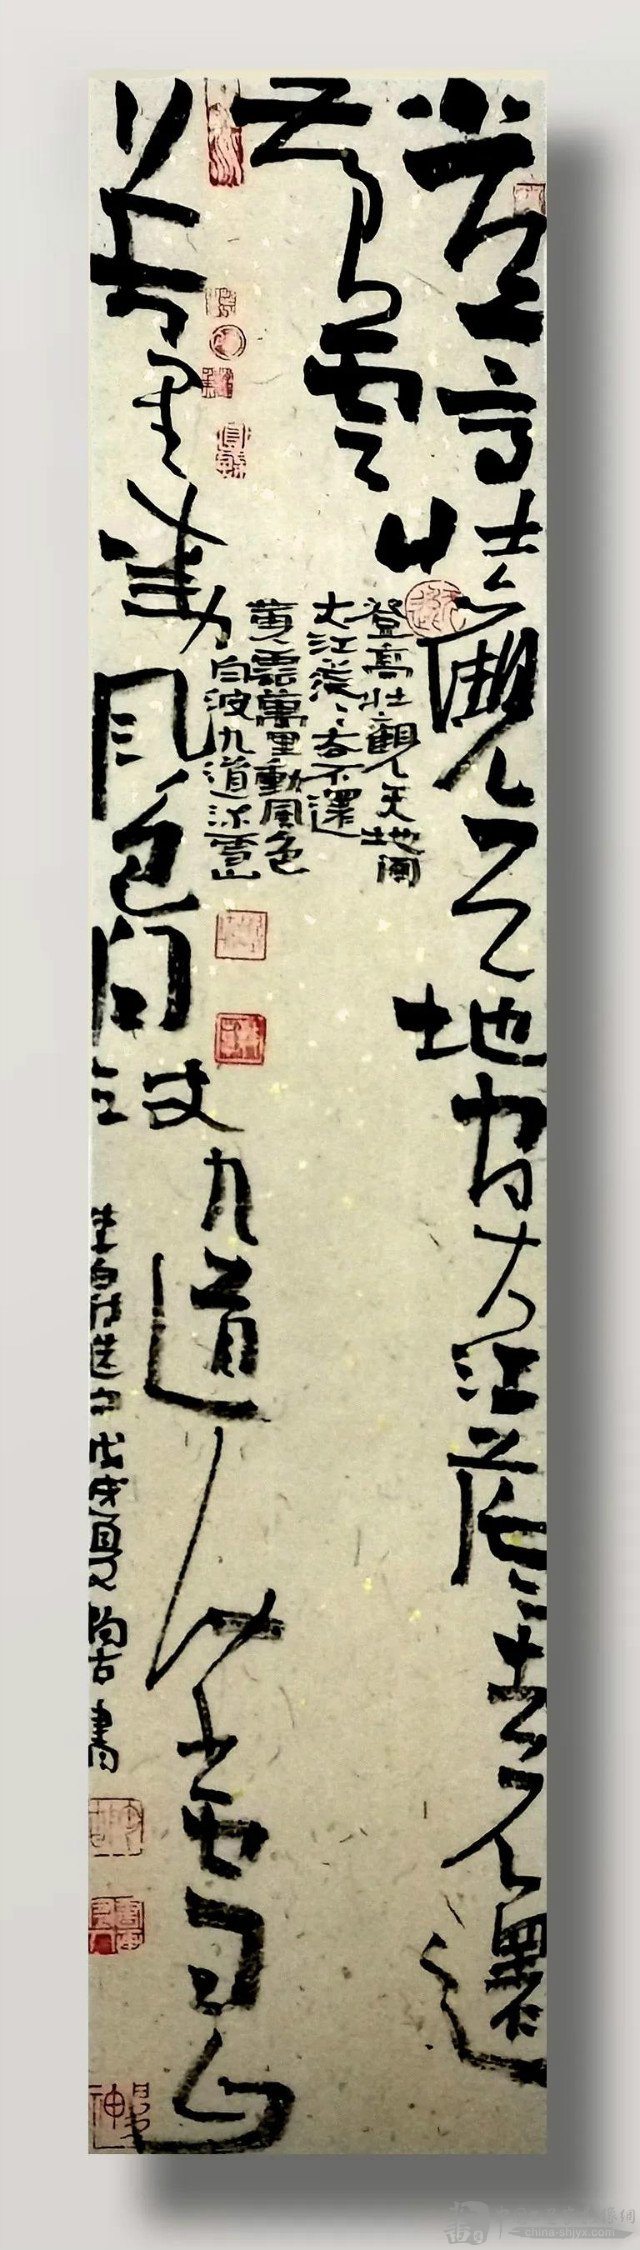 登高壯觀天地間大江茫茫去不還
黃雲
萬里動風色白波九道流雪山
登高壯觀天地間
大江茫茫去不還
黃雲萬里動風色
白波九道流雪山
李白詩選句戊戌夏尚古書
china-shjyx.com